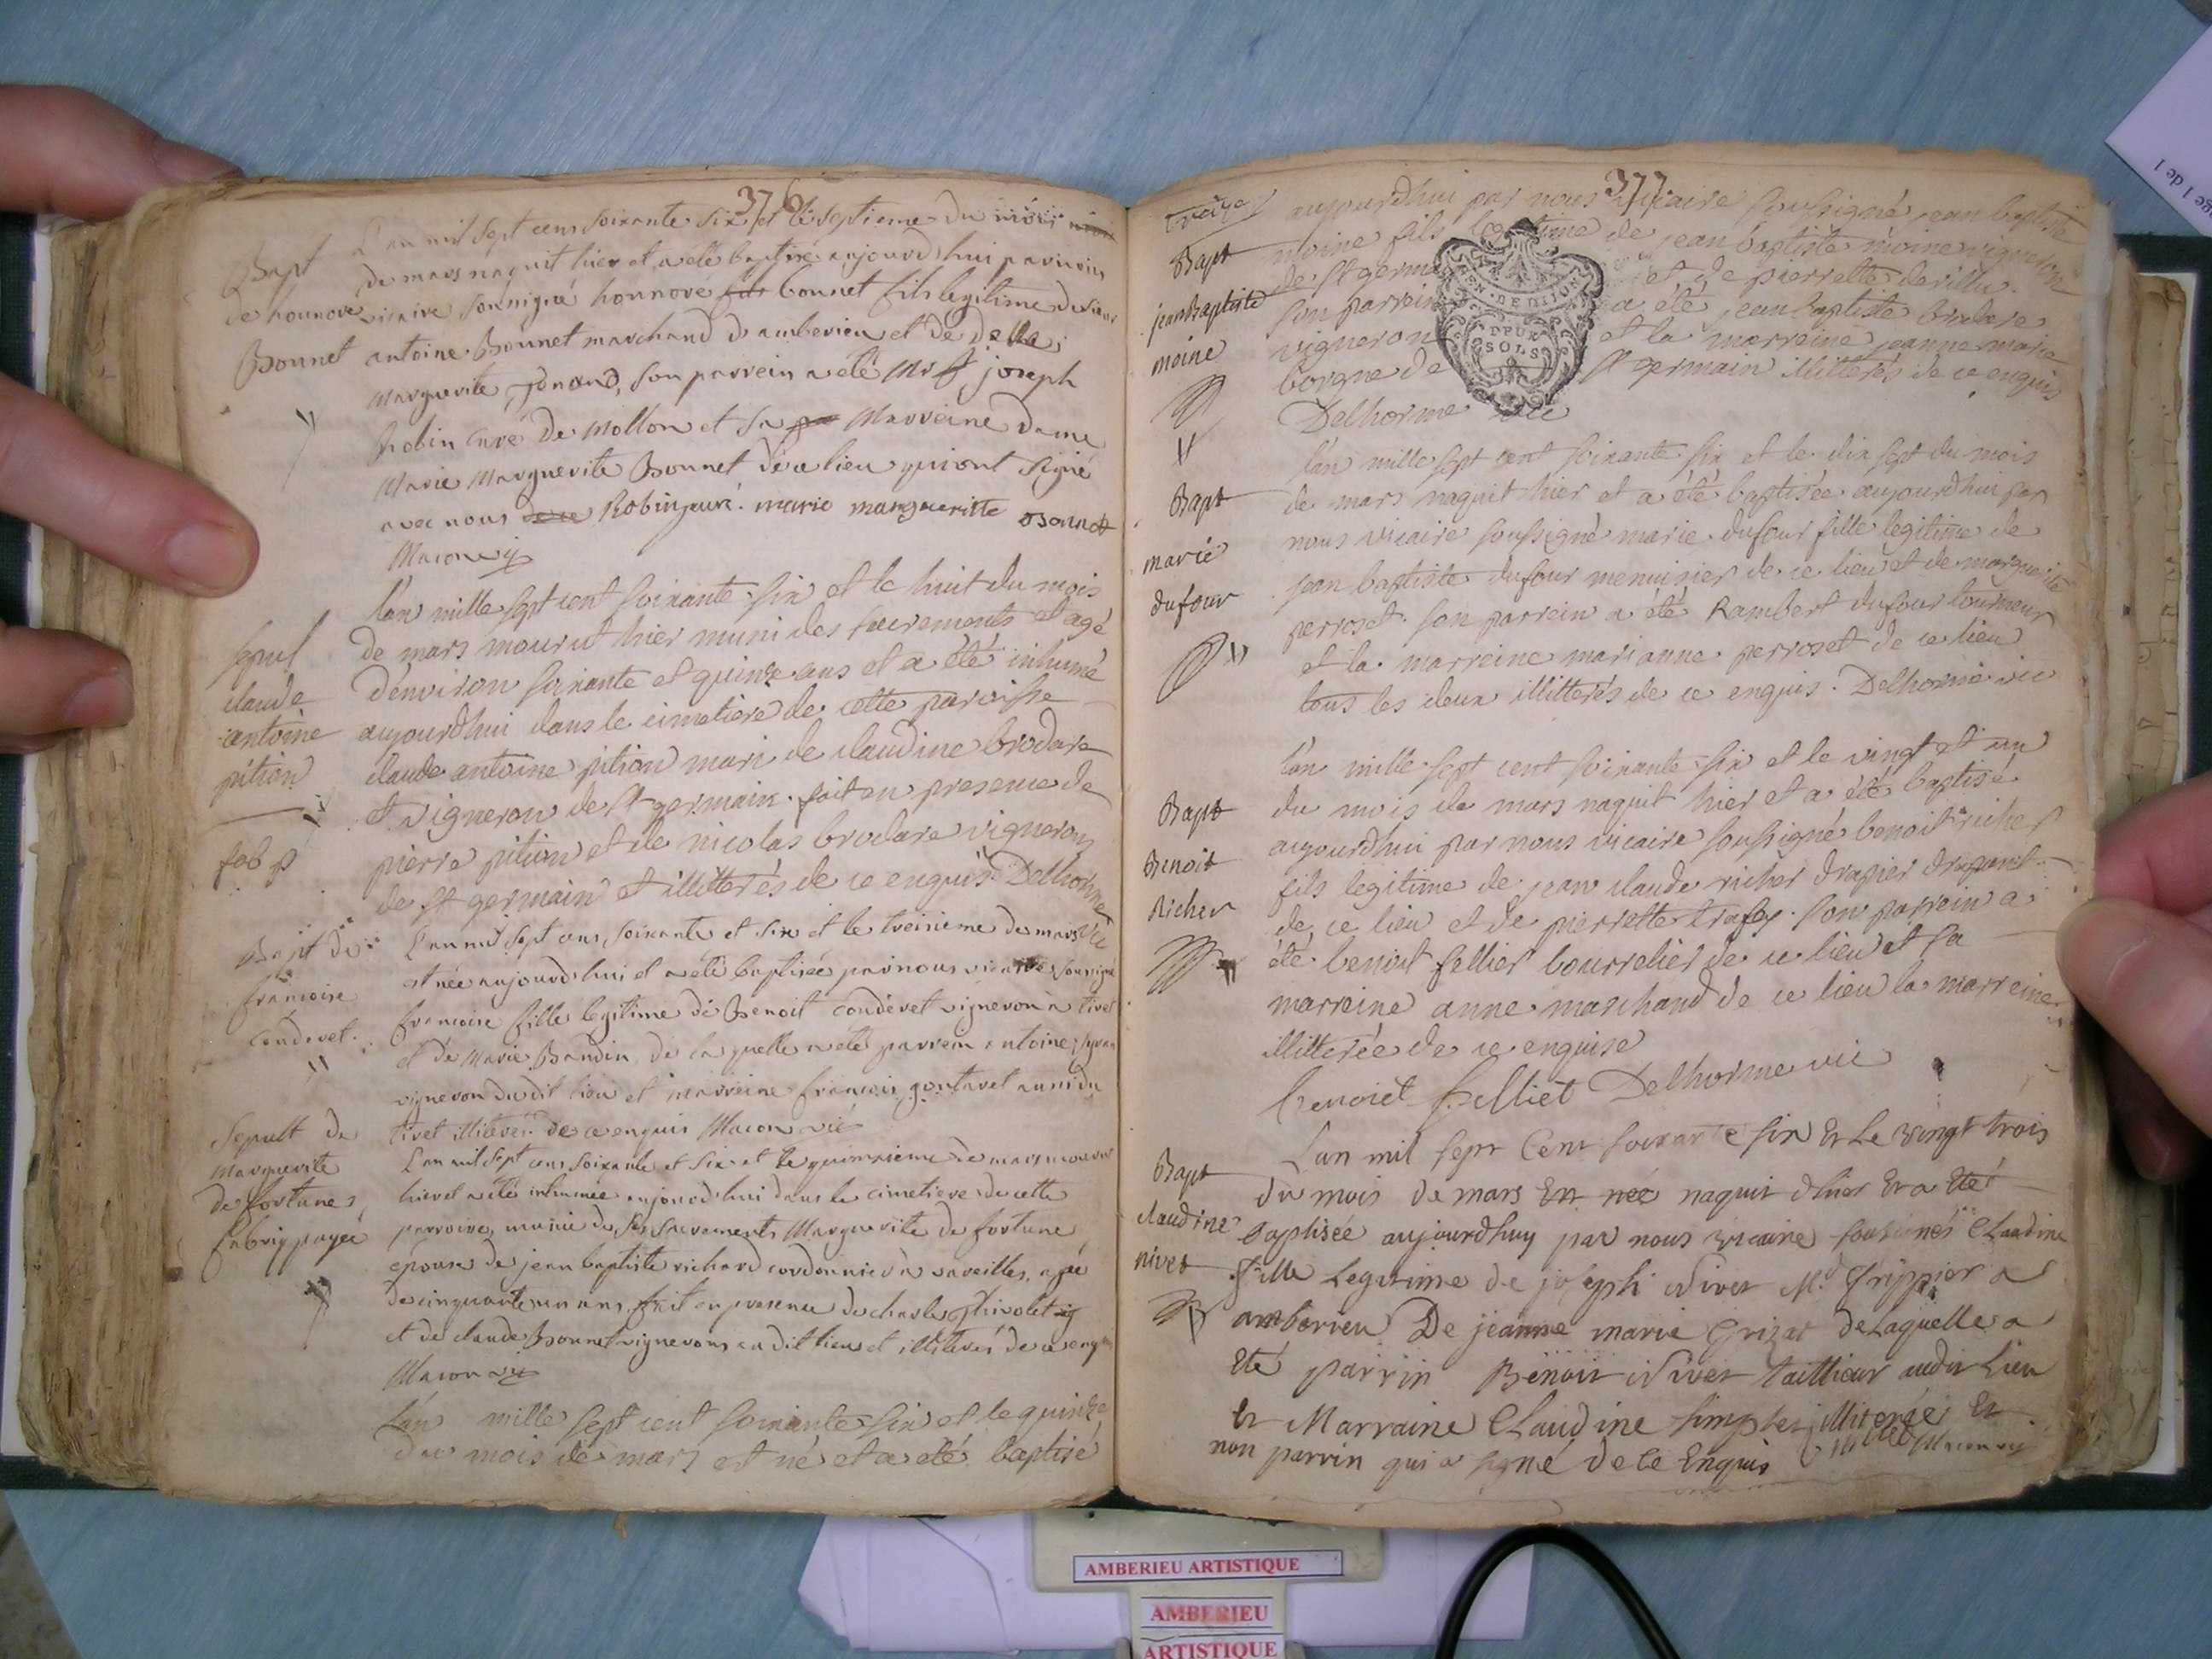 376
Bapt
de honnore
Bonnet
L'an mil sept cens soixante six et le septieme du mois
de mars naquit hier et a été baptisé aujourd'hui par nous
vicaire soussigné honnore bonnet fils legitime de sieur
antoine Bonnet marchand d'amberieu et de delle
Marguerite son parrein a été Mr joseph
Robin curé de Mollon et sa Marreine dame
Marie Marguerite Bonnet de ce lieu qui ont signé
avec nous Robin curé. marie margueritte Bonnet
Macon vic
sepul
claude
antoine
pition
l'an mille sept cent soixante six et le huit du mois
de mars mourut hier muni des sacrements et agé
d'environ soixante et quinze ans et a été inhumé
aujourdhui dans le cimetiere de cette paroisse
claude antoine pition mari de claudine brodare
et vigneron de st germain. fait en presence de
pierre pition et de nicolas brodare vignerons
de st germain et illitterés de ce enquis. Delhorme
vic
fab p
Bapt de
francoise
Condevet
L'an mil sept cens soixante et six et le treisieme de mars
est née aujourd'hui et a été baptisée par nous vicaire soussigné
francoise fille legitime de Benoit condevet vigneron a tiret
et de Marie Baudin de laquelle a été parrein antoine
vigneron dudit lieu et marreine francoise goutavet aussi du
tiret illiterés de ce enquis Macon vic
Sepult de
Marguerite
de fortune
fabriq payée
L'an mil sept cens soixante et six et le quinzieme de mars mourut
hier et a été inhumée aujourd'hui dans le cimetiere de cette
parroisse, munie de ses sacrements Marguerite de fortune
épouse de jean baptiste richard cordonnier a vareilles, agée
de cinquante un ans. fait en presence de charles
et de claude Bonnet vignerons au dit lieu et illiterés de ce enquis
Macon vic
L'an mille sept cent soixante six et le quinze
du mois de mars est né et a été baptisé
377
Bapt
jean Baptiste
moine
aujourdhui par nous vicaire soussigné jean baptiste
moine fils legitime de jean baptiste moine vigneron
de st germain et de pierrette
son parrein a été jean baptiste brodare
vigneron et la marreine jeanne marie
borgne de st germain illitterés de ce enquis
Delhorme vic
GEN. DE DIJON
DEUX
SOLS
Bapt
marie
dufour
l'an mille sept cent soixante six et le dix sept du mois
de mars naquit hier et a été baptisée aujourdhui par
nous vicaire soussigné marie dufour fille legitime de
jean baptiste dufour menuisier de ce lieu et de marguerite
perroset. son parrein a été Rambert dufour tourneur
et la marreine marianne perroset de ce lieu
tous les deux illitterés de ce enquis. Delhorme vic
Bapt
Benoit
Richer
l'an mille sept cent soixante six et le vingt et un
du mois de mars naquit hier et a été baptisé
aujourdhui par nous vicaire soussigné benoit richer
fils legitime de jean claude richer drapier drapant
de ce lieu et de pierrette trafay. son parrein a
été benoit fellier bourrelier de ce lieu et sa
marreine anne marchand de ce lieu la marreine
illitterée de ce enquise
benoiet felliet Delhorme vic
Bapt
claudine
nivet
L'an mil sept Cent soixante six Et Le vingt trois
du mois de mars Est née naquit dhier Et a Eté
Baptisée aujourdhuy par nous vicaire sousignés Claudine
fille Legitime de joseph Nivet Md frippier a
amberieu De jeanne marie Grizat de Laquelle a
Eté parrin Benoit Nivet taillieur audit Lieu
Et Marraine Claudine simplex illiterée Et
non parrin qui a signé de Ce Enquis
B Nivet Macon vic
AMBERIEU ARTISTIQUE
AMBERIEU
ARTISTIQUE